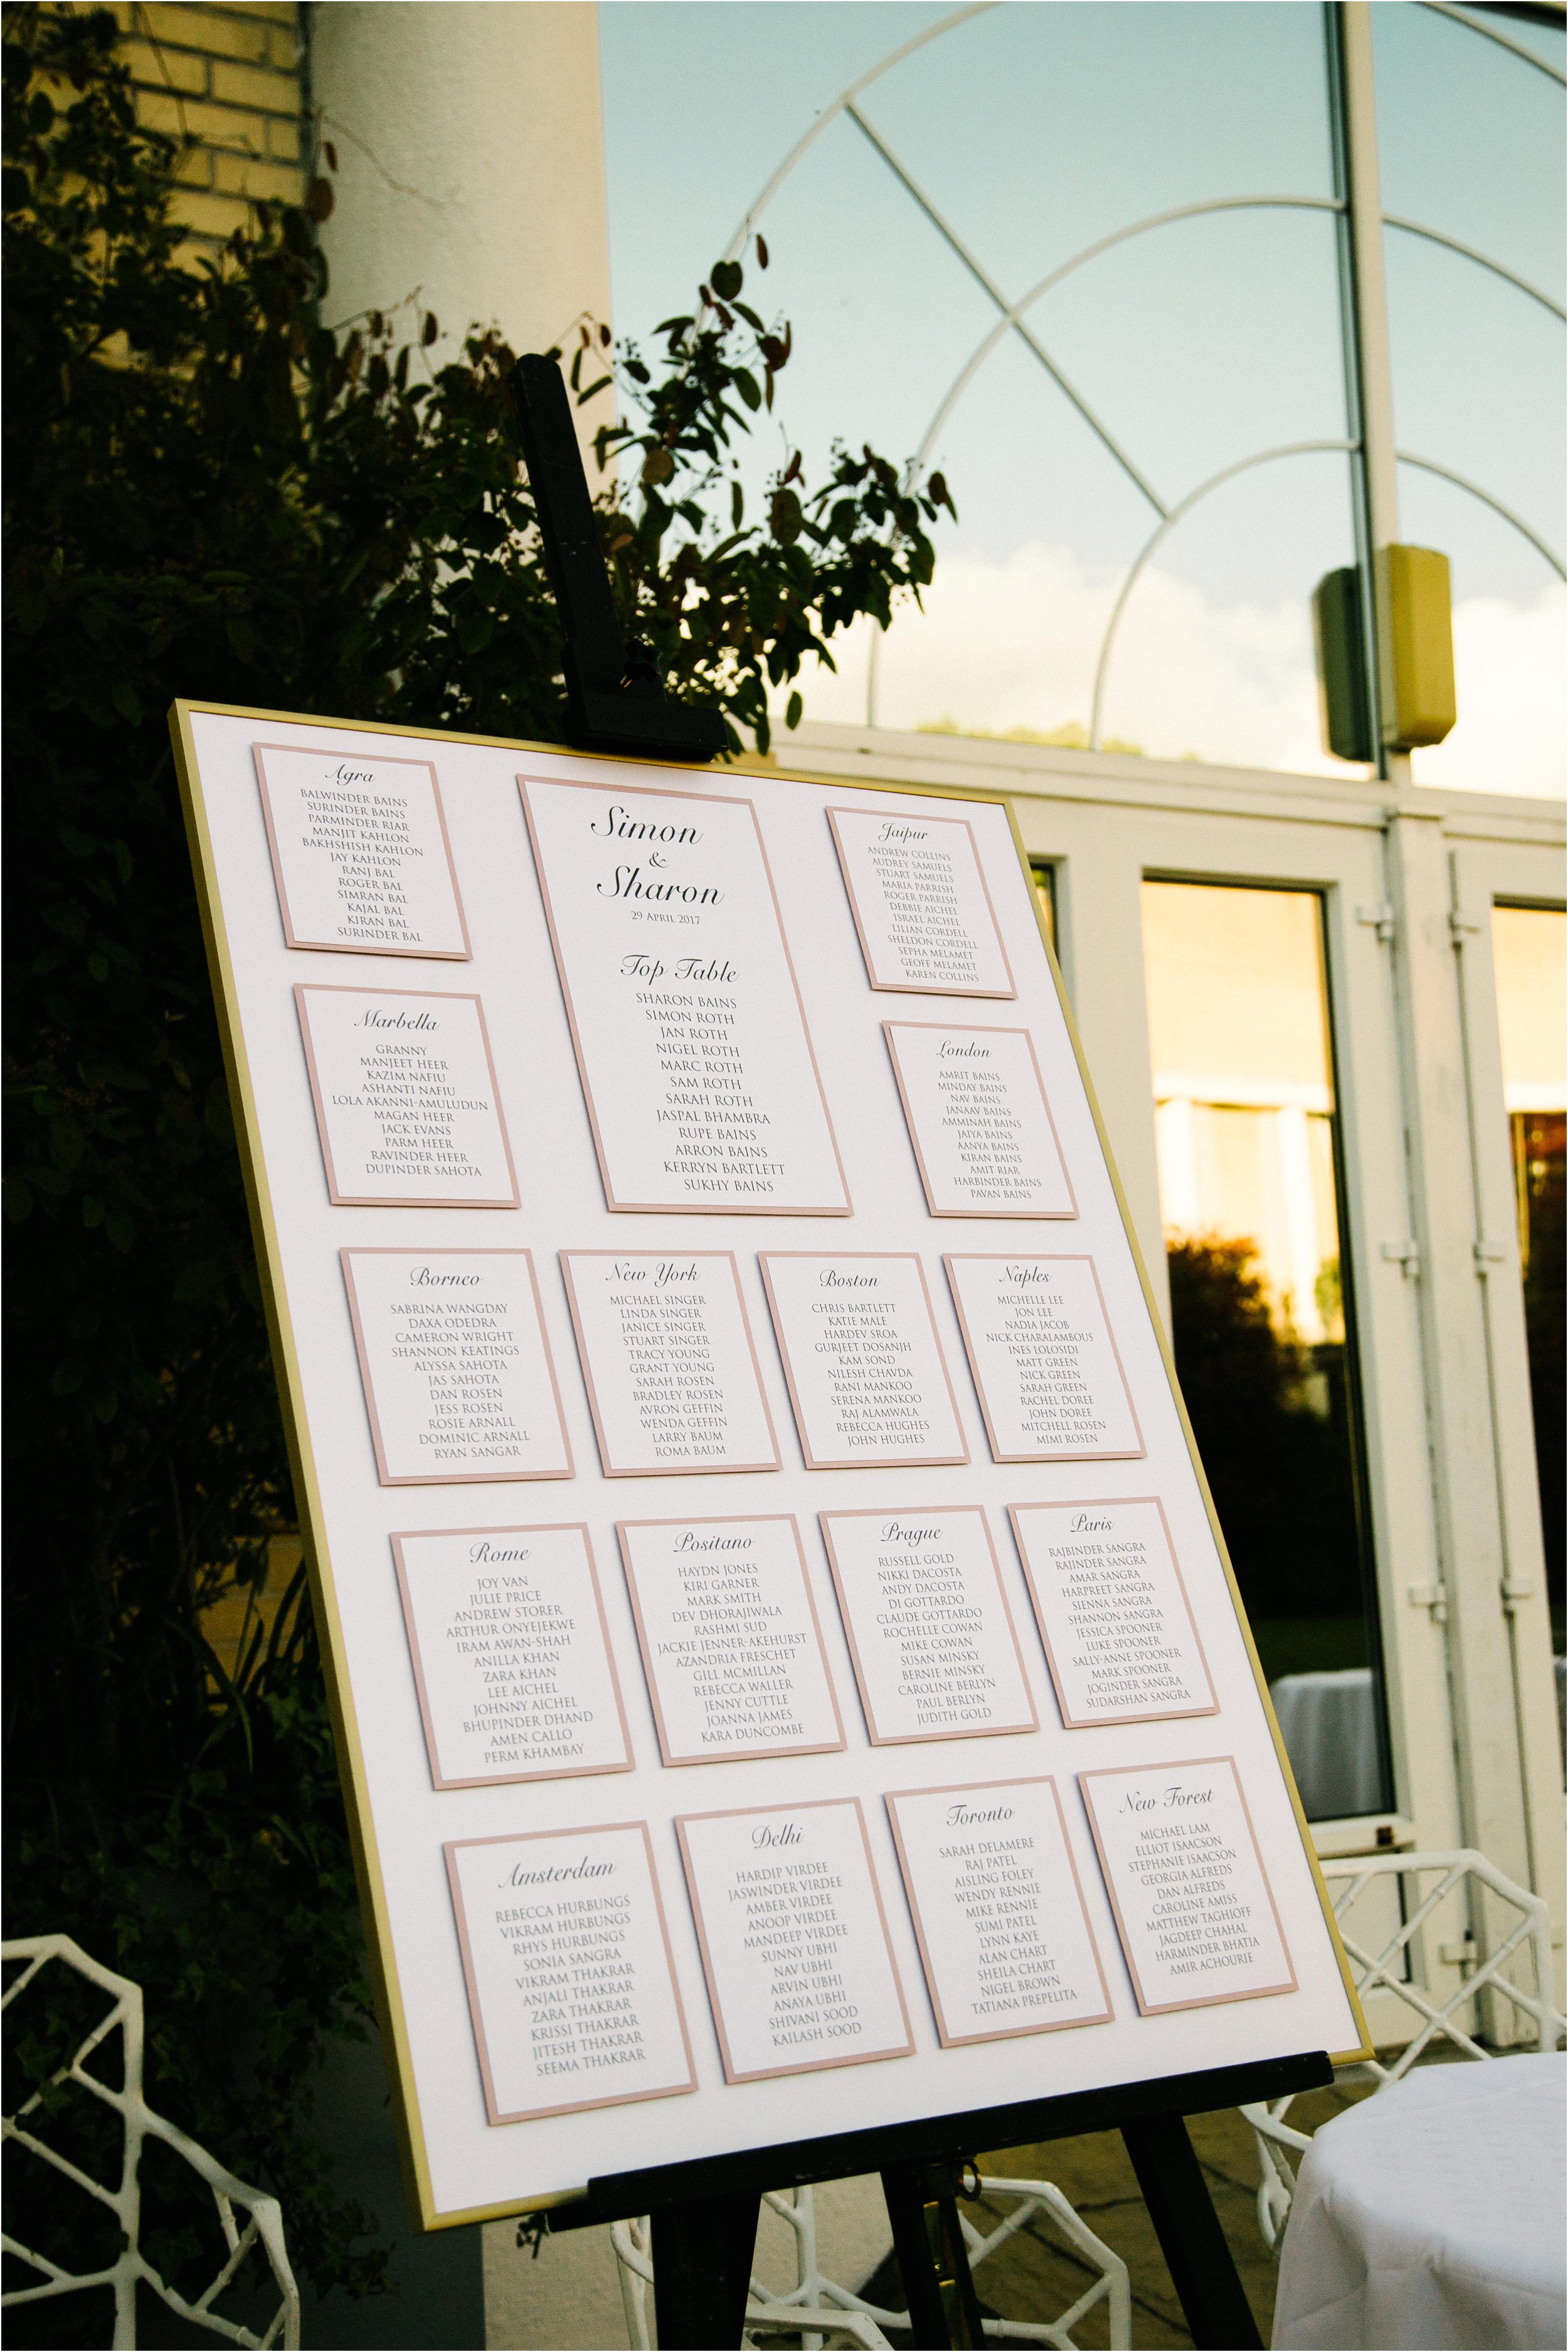 Agra
BALWINDER BAINS
SURINDER BAINS
PARMINDER RIAR
MANJIT KAHLON
BAKHSHISH KAHLON
JAY KAHLON
RANJ BAL
ROGER BAL
SIMRAN BAL
KAJAL BAL
KIRAN BAL
SURINDER BAL
Simon
&
Sharon
29 APRIL 2017
Top Table
SHARON BAINS
SIMON ROTH
JAN ROTH
NIGEL ROTH
MARC ROTH
SAM ROTH
SARAH ROTH
JASPAL BHAMBRA
RUPE BAINS
ARRON BAINS
KERRYN BARTLETT
SUKHY BAINS
Jaipur
ANDREW COLLINS
AUDREY SAMUELS
STUART SAMUELS
MARIA PARRISH
ROGER PARRISH
DEBBIE AICHEL
ISRAEL AICHEL
LILIAN CORDELL
SHELDON CORDELL
SEPHA MELAMET
GEOFF MELAMET
KAREN COLLINS
Marbella
GRANNY
MANJEET HEER
KAZIM NAFIU
ASHANTI NAFIU
LOLA AKANNI-AMULUDUN
MAGAN HEER
JACK EVANS
PARM HEER
RAVINDER HEER
DUPINDER SAHOTA
London
AMRIT BAINS
MINDAY BAINS
NAV BAINS
JANAAV BAINS
AMMINAH BAINS
JAIYA BAINS
AANYA BAINS
KIRAN BAINS
AMIT RIAR
HARBINDER BAINS
PAVAN BAINS
Borneo
SABRINA WANGDAY
DAXA ODEDRA
CAMERON WRIGHT
SHANNON KEATINGS
ALYSSA SAHOTA
JAS SAHOTA
DAN ROSEN
JESS ROSEN
ROSIE ARNALL
DOMINIC ARNALL
RYAN SANGAR
New York
MICHAEL SINGER
LINDA SINGER
JANICE SINGER
STUART SINGER
TRACY YOUNG
GRANT YOUNG
SARAH ROSEN
BRADLEY ROSEN
AVRON GEFFIN
WENDA GEFFIN
LARRY BAUM
ROMA BAUM
Boston
CHRIS BARTLETT
KATIE MALE
HARDEV SROA
GURJEET DOSANJH
KAM SOND
NILESH CHAVDA
RANI MANKOO
SERENA MANKOO
RAJ ALAMWALA
REBECCA HUGHES
JOHN HUGHES
Naples
MICHELLE LEE
JON LEE
NADIA JACOB
NICK CHARALAMBOUS
INES LOLOSIDI
MATT GREEN
NICK GREEN
SARAH GREEN
RACHEL DOREE
JOHN DOREE
MITCHELL ROSEN
MIMI ROSEN
Rome
JOY VAN
JULIE PRICE
ANDREW STORER
ARTHUR ONYEJEKWE
IRAM AWAN-SHAH
ANILLA KHAN
ZARA KHAN
LEE AICHEL
JOHNNY AICHEL
BHUPINDER DHAND
AMEN CALLO
PERM KHAMBAY
Positano
HAYDN JONES
KIRI GARNER
MARK SMITH
DEV DHORAJIWALA
RASHMI SUD
JACKIE JENNER-AKEHURST
AZANDRIA FRESCHET
GILL MCMILLAN
REBECCA WALLER
JENNY CUTTLE
JOANNA JAMES
KARA DUNCOMBE
Prague
RUSSELL GOLD
NIKKI DACOSTA
ANDY DACOSTA
DI GOTTARDO
CLAUDE GOTTARDO
ROCHELLE COWAN
MIKE COWAN
SUSAN MINSKY
BERNIE MINSKY
CAROLINE BERLYN
PAUL BERLYN
JUDITH GOLD
Paris
RAJBINDER SANGRA
RAJINDER SANGRA
AMAR SANGRA
HARPREET SANGRA
SIENNA SANGRA
SHANNON SANGRA
JESSICA SPOONER
LUKE SPOONER
SALLY-ANNE SPOONER
MARK SPOONER
JOGINDER SANGRA
SUDARSHAN SANGRA
Amsterdam
REBECCA HURBUNGS
VIKRAM HURBUNGS
RHYS HURBUNGS
SONIA SANGRA
VIKRAM THAKRAR
ANJALI THAKRAR
ZARA THAKRAR
KRISSI THAKRAR
JITESH THAKRAR
SEEMA THAKRAR
Delhi
HARDIP VIRDEE
JASWINDER VIRDEE
AMBER VIRDEE
ANOOP VIRDEE
MANDEEP VIRDEE
SUNNY UBHI
NAV UBHI
ARVIN UBHI
ANAYA UBHI
SHIVANI SOOD
KAILASH SOOD
Toronto
SARAH DELAMERE
RAJ PATEL
AISLING FOLEY
WENDY RENNIE
MIKE RENNIE
SUMI PATEL
LYNN KAYE
ALAN CHART
SHEILA CHART
NIGEL BROWN
TATIANA PREPELITA
New Forest
MICHAEL LAM
ELLIOT ISAACSON
STEPHANIE ISAACSON
GEORGIA ALFREDS
DAN ALFREDS
CAROLINE AMISS
MATTHEW TAGHIOFF
JAGDEEP CHAHAL
HARMINDER BHATIA
AMIR ACHOURIE